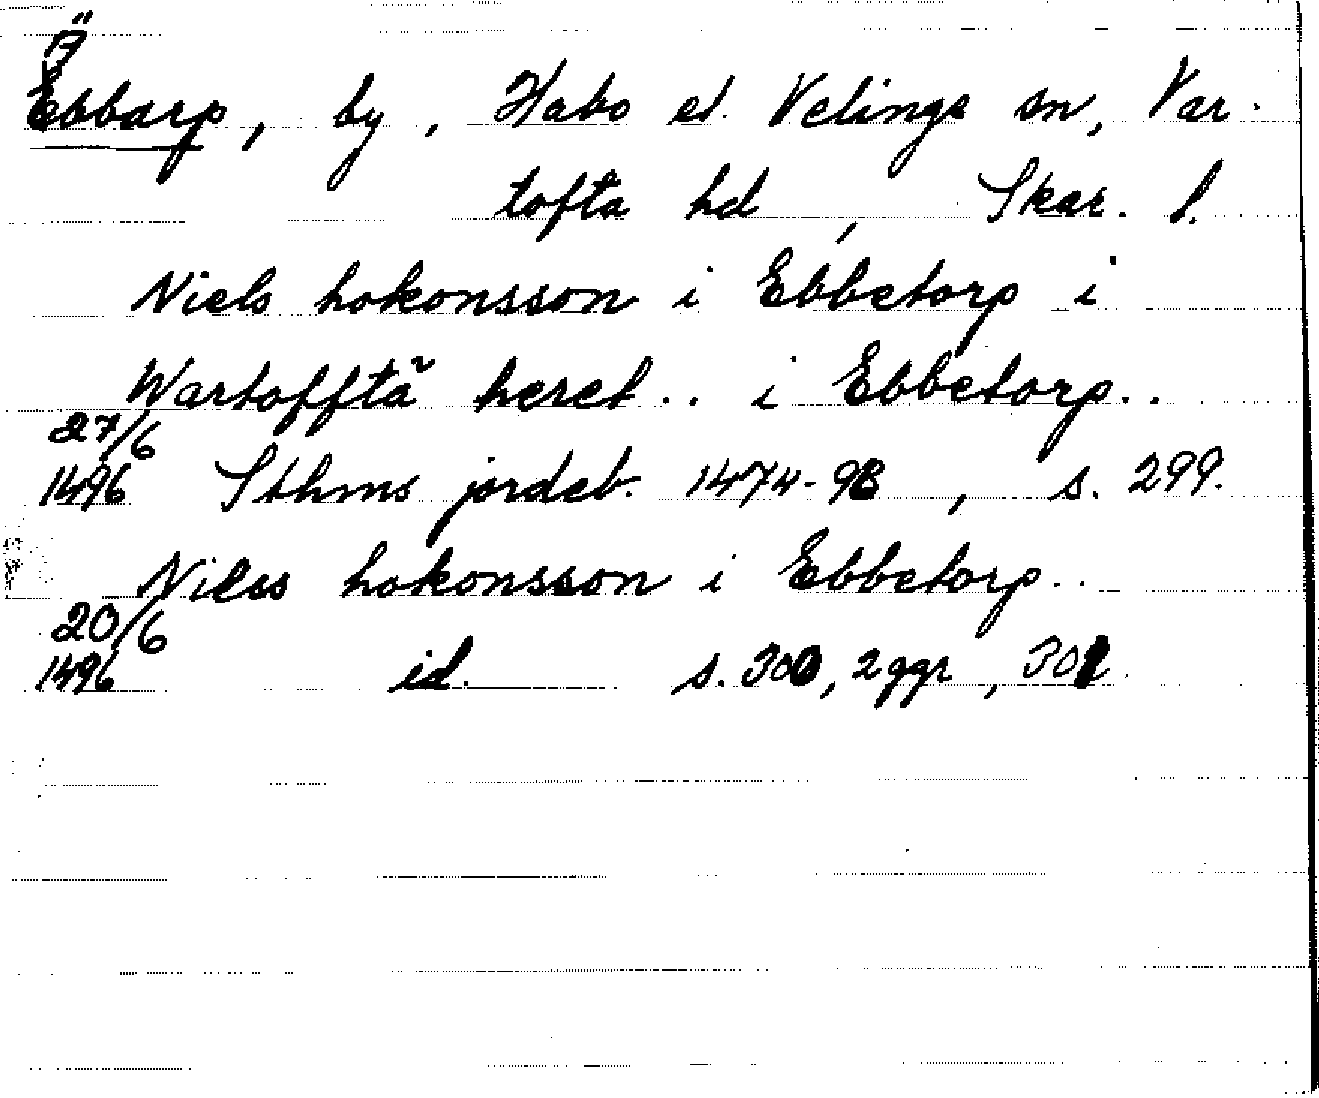 Ä
Ebbarp, by, Habo el. Velinge sn, Var-
tofta hd, Skar. l.
Niels hokonsson i Ebbetorp i
Wartofftã heret.. i Ebbetorp..
27/6
1496 Sthms jordeb. 1474-98, s. 299.
Niels hokonsson i Ebbetorp..
20/6
1496 id. s. 300, 2 ggr, 301.